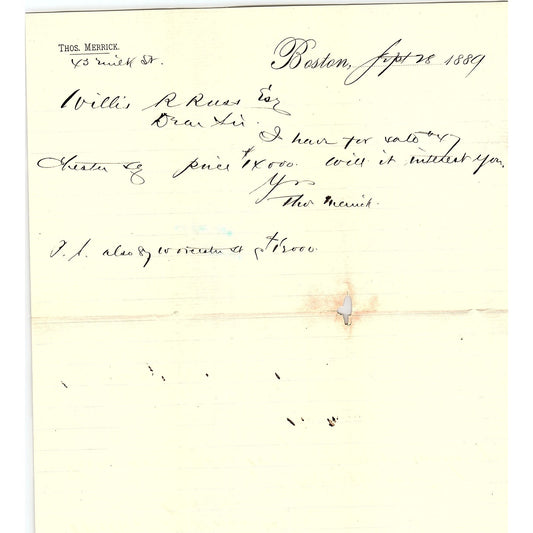 Thos. Merrick.
43 Milk St.
Boston, Sept 28 1889
Willis R Russ Esq
Dear Sir.
I have for sale #47
Chester Sq price $14000. Will it interest you,
Yrs
Thos Merrick.
P. S. also 87 Worcester St $13000.